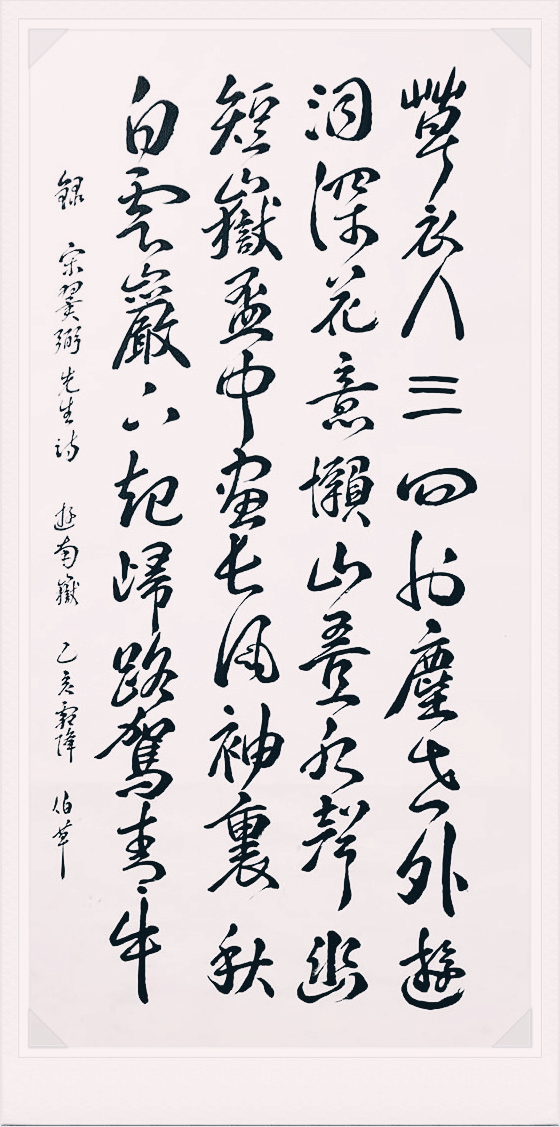 草衣人三四於塵世外遊
洞深花意懶山疊水聲幽
短嶽盃中畫長風袖裏秋
白雲巖下起歸路駕青牛
錄 宋翼弼先生詩 遊南嶽 己亥霜降 伯華